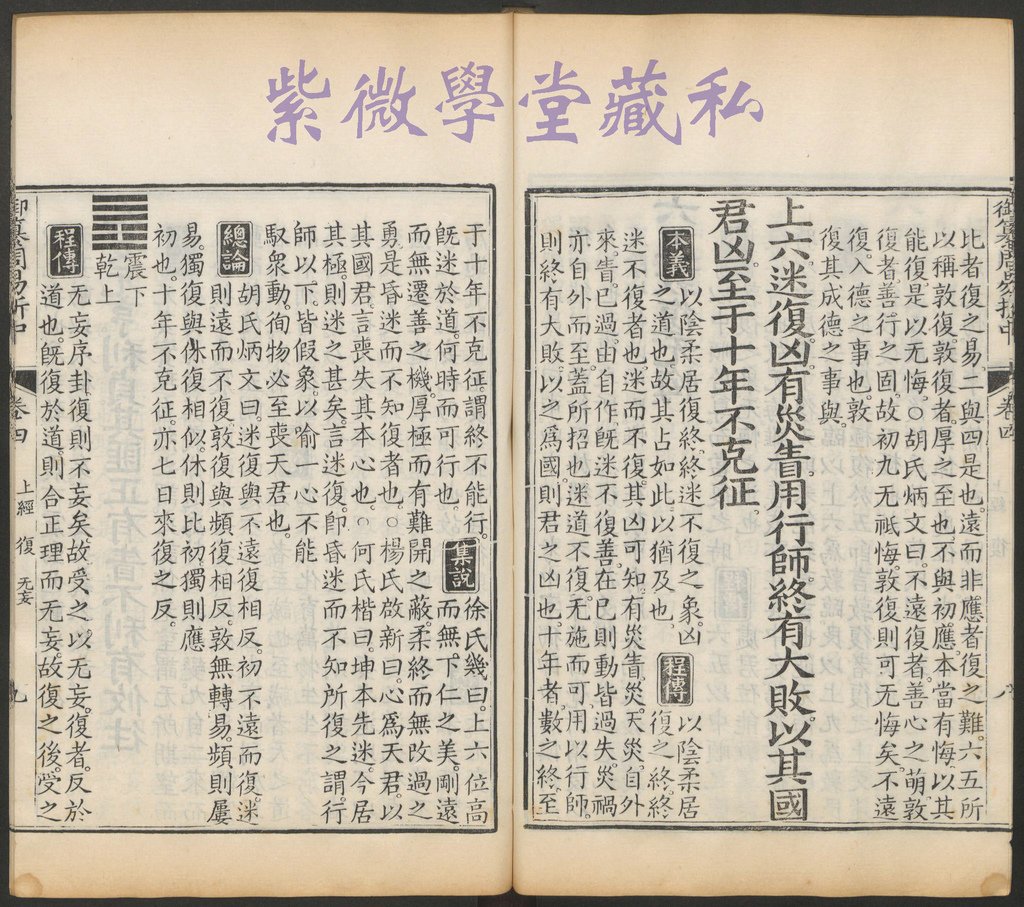 紫微學堂藏私
御纂周易折中 卷四 上經 復 八
比者復之易。二與四是也。遠而非應者復之難。六五所
以稱敦復。敦復者厚之至也。不與初應。本當有悔。以其
能復。是以无悔。○胡氏炳文曰。不遠復者。善心之萌。敦
復者。善行之固。故初九无祗悔。敦復則可无悔矣。不遠
復。入德之事也。敦
復。其成德之事與。
上六。迷復凶。有災眚。用行師。終有大敗。以其國
君凶。至于十年不克征。
本義 以陰柔居復終。終迷不復之象。凶
之道也。故其占如此。以猶及也。
程傳 以陰柔居
復之終。終
迷不復者也。迷而不復。其凶可知。有災眚。災天災。自外
來。眚已過。由自作。既迷不復善。在已則動皆過失。災禍
亦自外而至。蓋所招也。迷道不復。无施而可。用以行師。
則終有大敗。以之爲國。則君之凶也。十年者。數之終。至
于十年不克征。謂終不能行。
既迷於道。何時而可行也。
集說 徐氏幾曰。上六位高
而無下仁之美。剛遠
而無遷善之機。厚極而有難開之蔽。柔終而無改過之
勇。是昏迷而不知復者也。○楊氏啟新曰。心爲天君。以
其國君。言喪失其本心也。○何氏楷曰。坤本先迷。今居
其極。則迷之甚矣。言迷復。卽昏迷而不知所復之謂。行
師以下。皆假象。以喻一心不能
馭衆動。徇物必至喪天君也。
總論 胡氏炳文曰。迷復與不遠復相反。初不遠而復。迷
則遠而不復。敦復與頻復相反。敦無轉易。頻則屢
易。獨復與休復相似。休則比初。獨則應
初也。十年不克征。亦七日來復之反。
震下
乾上
程傳 无妄序卦。復則不妄矣。故受之以无妄。復者。反於
道也。既復於道。則合正理而无妄。故復之後。受之
御纂周易折中 卷四 上經 復 无妄 九